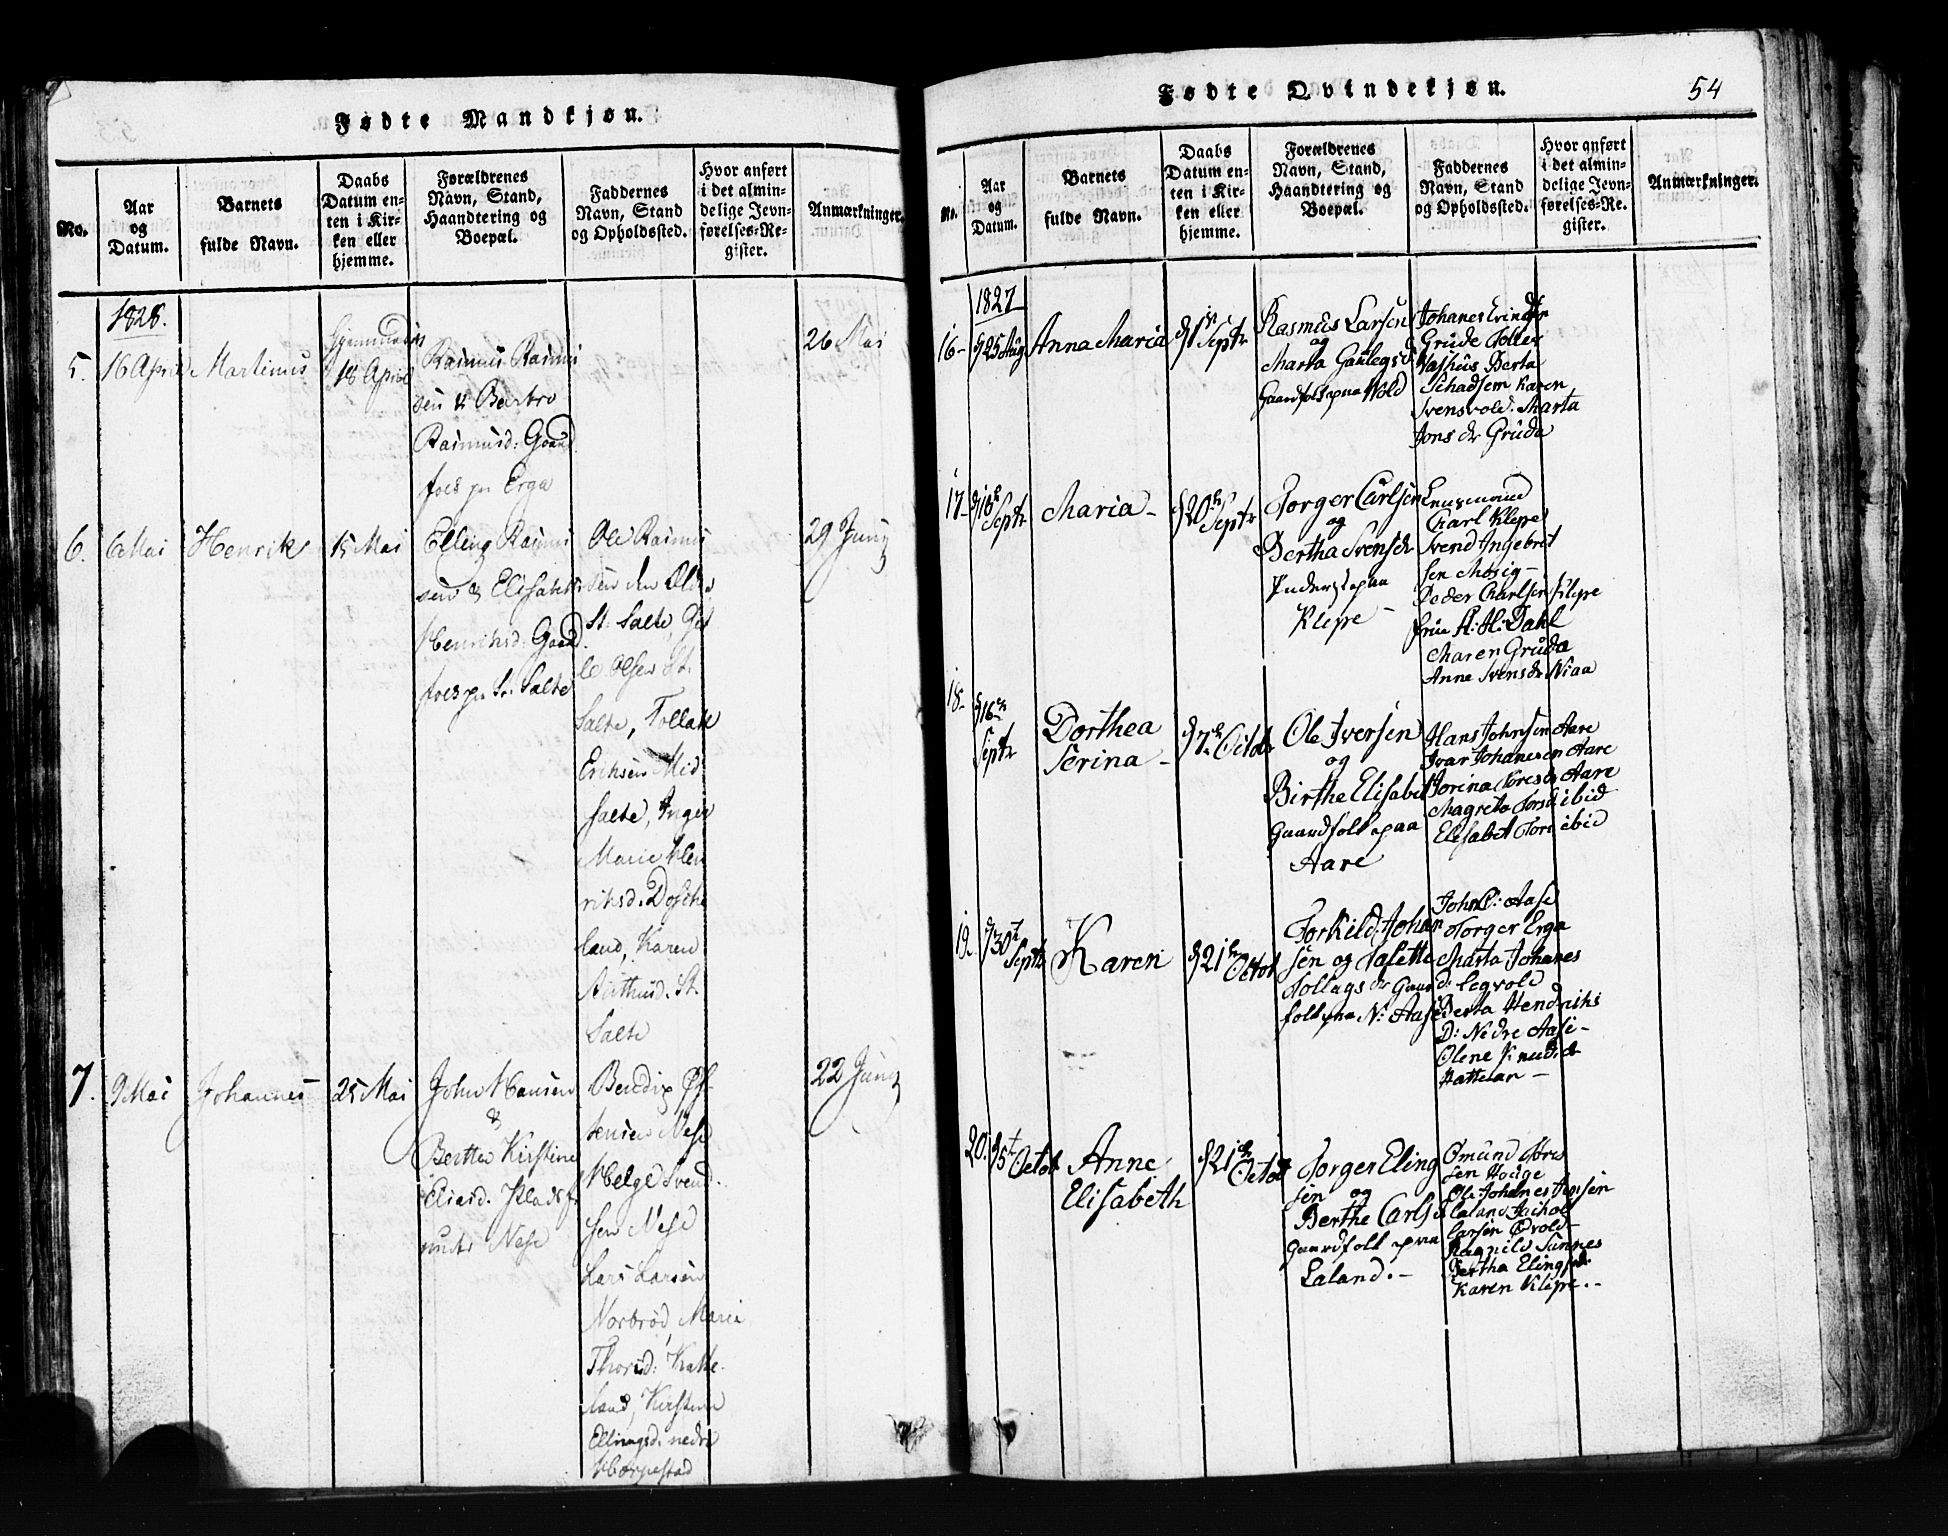 Fødte Mandkjøn.
No.
Aar
og
Datum.
Barnets
fulde Navn.
Daabs
Datum en-
ten i Kir-
ken eller
hjemme.
Forældrenes
Navn, Stand,
Haandtering og
Boepæl.
Faddernes
Navn, Stand
og Opholdssted.
Hvor anført
i det almin-
delige Jevn-
førelses-Re-
gister.
Anmærkninger.
1828.
5.
16 April
Martinus
Hjemmedøbt
18 April
Rasmus Rasmu
sen & Berbro
Rasmusd: Gaard
foes pa Erga
26 Mai
6.
6 Mai
Henrik
15 Mai
Elling Rasmu
sen & Elisabeth
Henriksd: Gaard
foes pa St: Salte
Ole Rasmus
sen den Eldre
St: Salte,
le Olsen St.
Salte, Tollak
Eriksen Mid
Salte, Inger
Marie Hen
riksd.
land, Karen
St.
Salte
29 Juny
7.
9 Mai
Johannes
25 Mai
John Hansen
&
Berthe Kirstine
Eliasd. Pladsf
Nese
Bendix
tensen Nese
Helge Svend-
sen Nese
Lars Larsen
Norbrød, Maria
Thorsd:
land, Kirsten
Ellingsd. nedre
Horpestad
22 Juny
Fødte Qvindekjøn.
54
No.
Aar
og
Datum.
Barnets
fulde Navn.
Daabs
Datum en-
ten i Kir-
ken eller
hjemme.
Forældrenes
Navn, Stand,
Haandtering og
Boepæl.
Faddernes
Navn, Stand
og Opholdssted.
Hvor anført
i det almin-
delige Jevn-
førelses-Re-
gister.
Anmærkninger.
1827
16-
d 25 Aug
Anna Maria
d 1 Septr
Rasmus Larsen
og
Marta Gaulegsd
Gaardfolk paa Wold
Johanes
Grude Tollev
Vashus Berta
Schadsem Karen
Svensvold. Marta
Jons dr Gruda
17-
d 18 Septr
Maria-
d 20 Septr
Torger Carlsen
og
Bertha Svensdr
Inderst paa
Klepe-
Carl Klepe
Svend Ingebret
sen Mosig-
Peder Charlsen Klepe
frue A: H: Dahl
Maren Gruda
Anne Svensdr Niaa
18-
d 16 Septr
Dorthea
Serina-
d 7 Octob
Ole Iversen
og
Birthe Elisabet
Gaardfolk paa
Aare
Hans Johnsen Aare
Ivar Johanesen Aare
Jorina Toresdr Aare
Magreta Torsd ibid
Elisabet Tors ibid
19.
d 30t Septr
Karen
d 21 Octob
Torkild Johan
sen og Josette
Tollags dr Gaard
folk paa N: Aase
John C: Aase
Torger Erga
Marta Johanes
d: Legvold
Berta Hendriks
D: Nedre Aase-
Olene Knudsdr
Hattelan-
20.
d 5t Octob
Anne
Elisabeth
d 21 Octob
Torger Eling
sen og
Berthe Carlsd
Gaardfolk paa
Laland.-
Ømund Tores
sen Houge
Ole Johanes Jensen
Laland
Larsen Øvold-
Ragnild Sunnes
Bertha Elingsd:
Karen Klepe.-